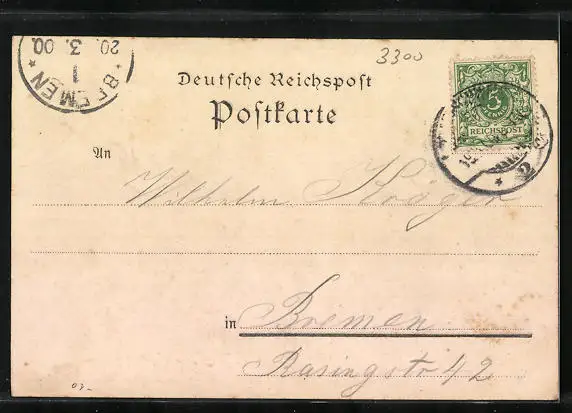 * BREMEN *
1
20. 3. 00.
3300
Deutsche Reichspost
Postkarte
5
REICHSPOST
An
Wilhelm
in Bremen
Rasingstr 42
03-